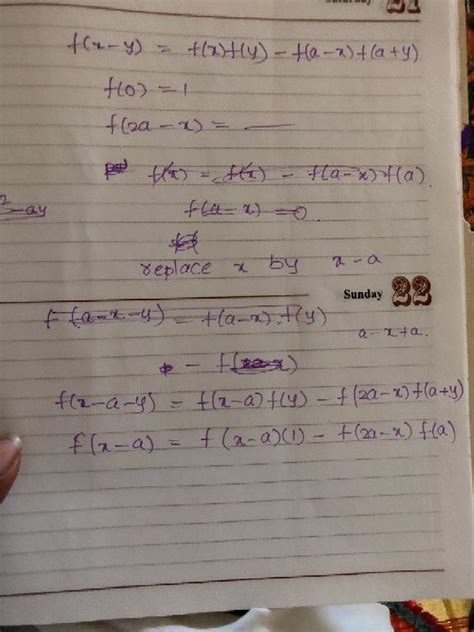 Saturday 21
f(x-y) = f(x)f(y) - f(a-x)f(a+y)
f(0) = 1
f(2a-x) = —
f(x) = f(x) - f(a-x)f(a).
f(a-x) = 0
2-ay
replace x by x-a
Sunday 22
f(a-x-y) = f(a-x).f(y)
a-x+a.
- f(2a-x)
f(x-a-y) = f(x-a)f(y) - f(2a-x)f(a+y)
f(x-a) = f(x-a)(1) - f(2a-x)f(a)